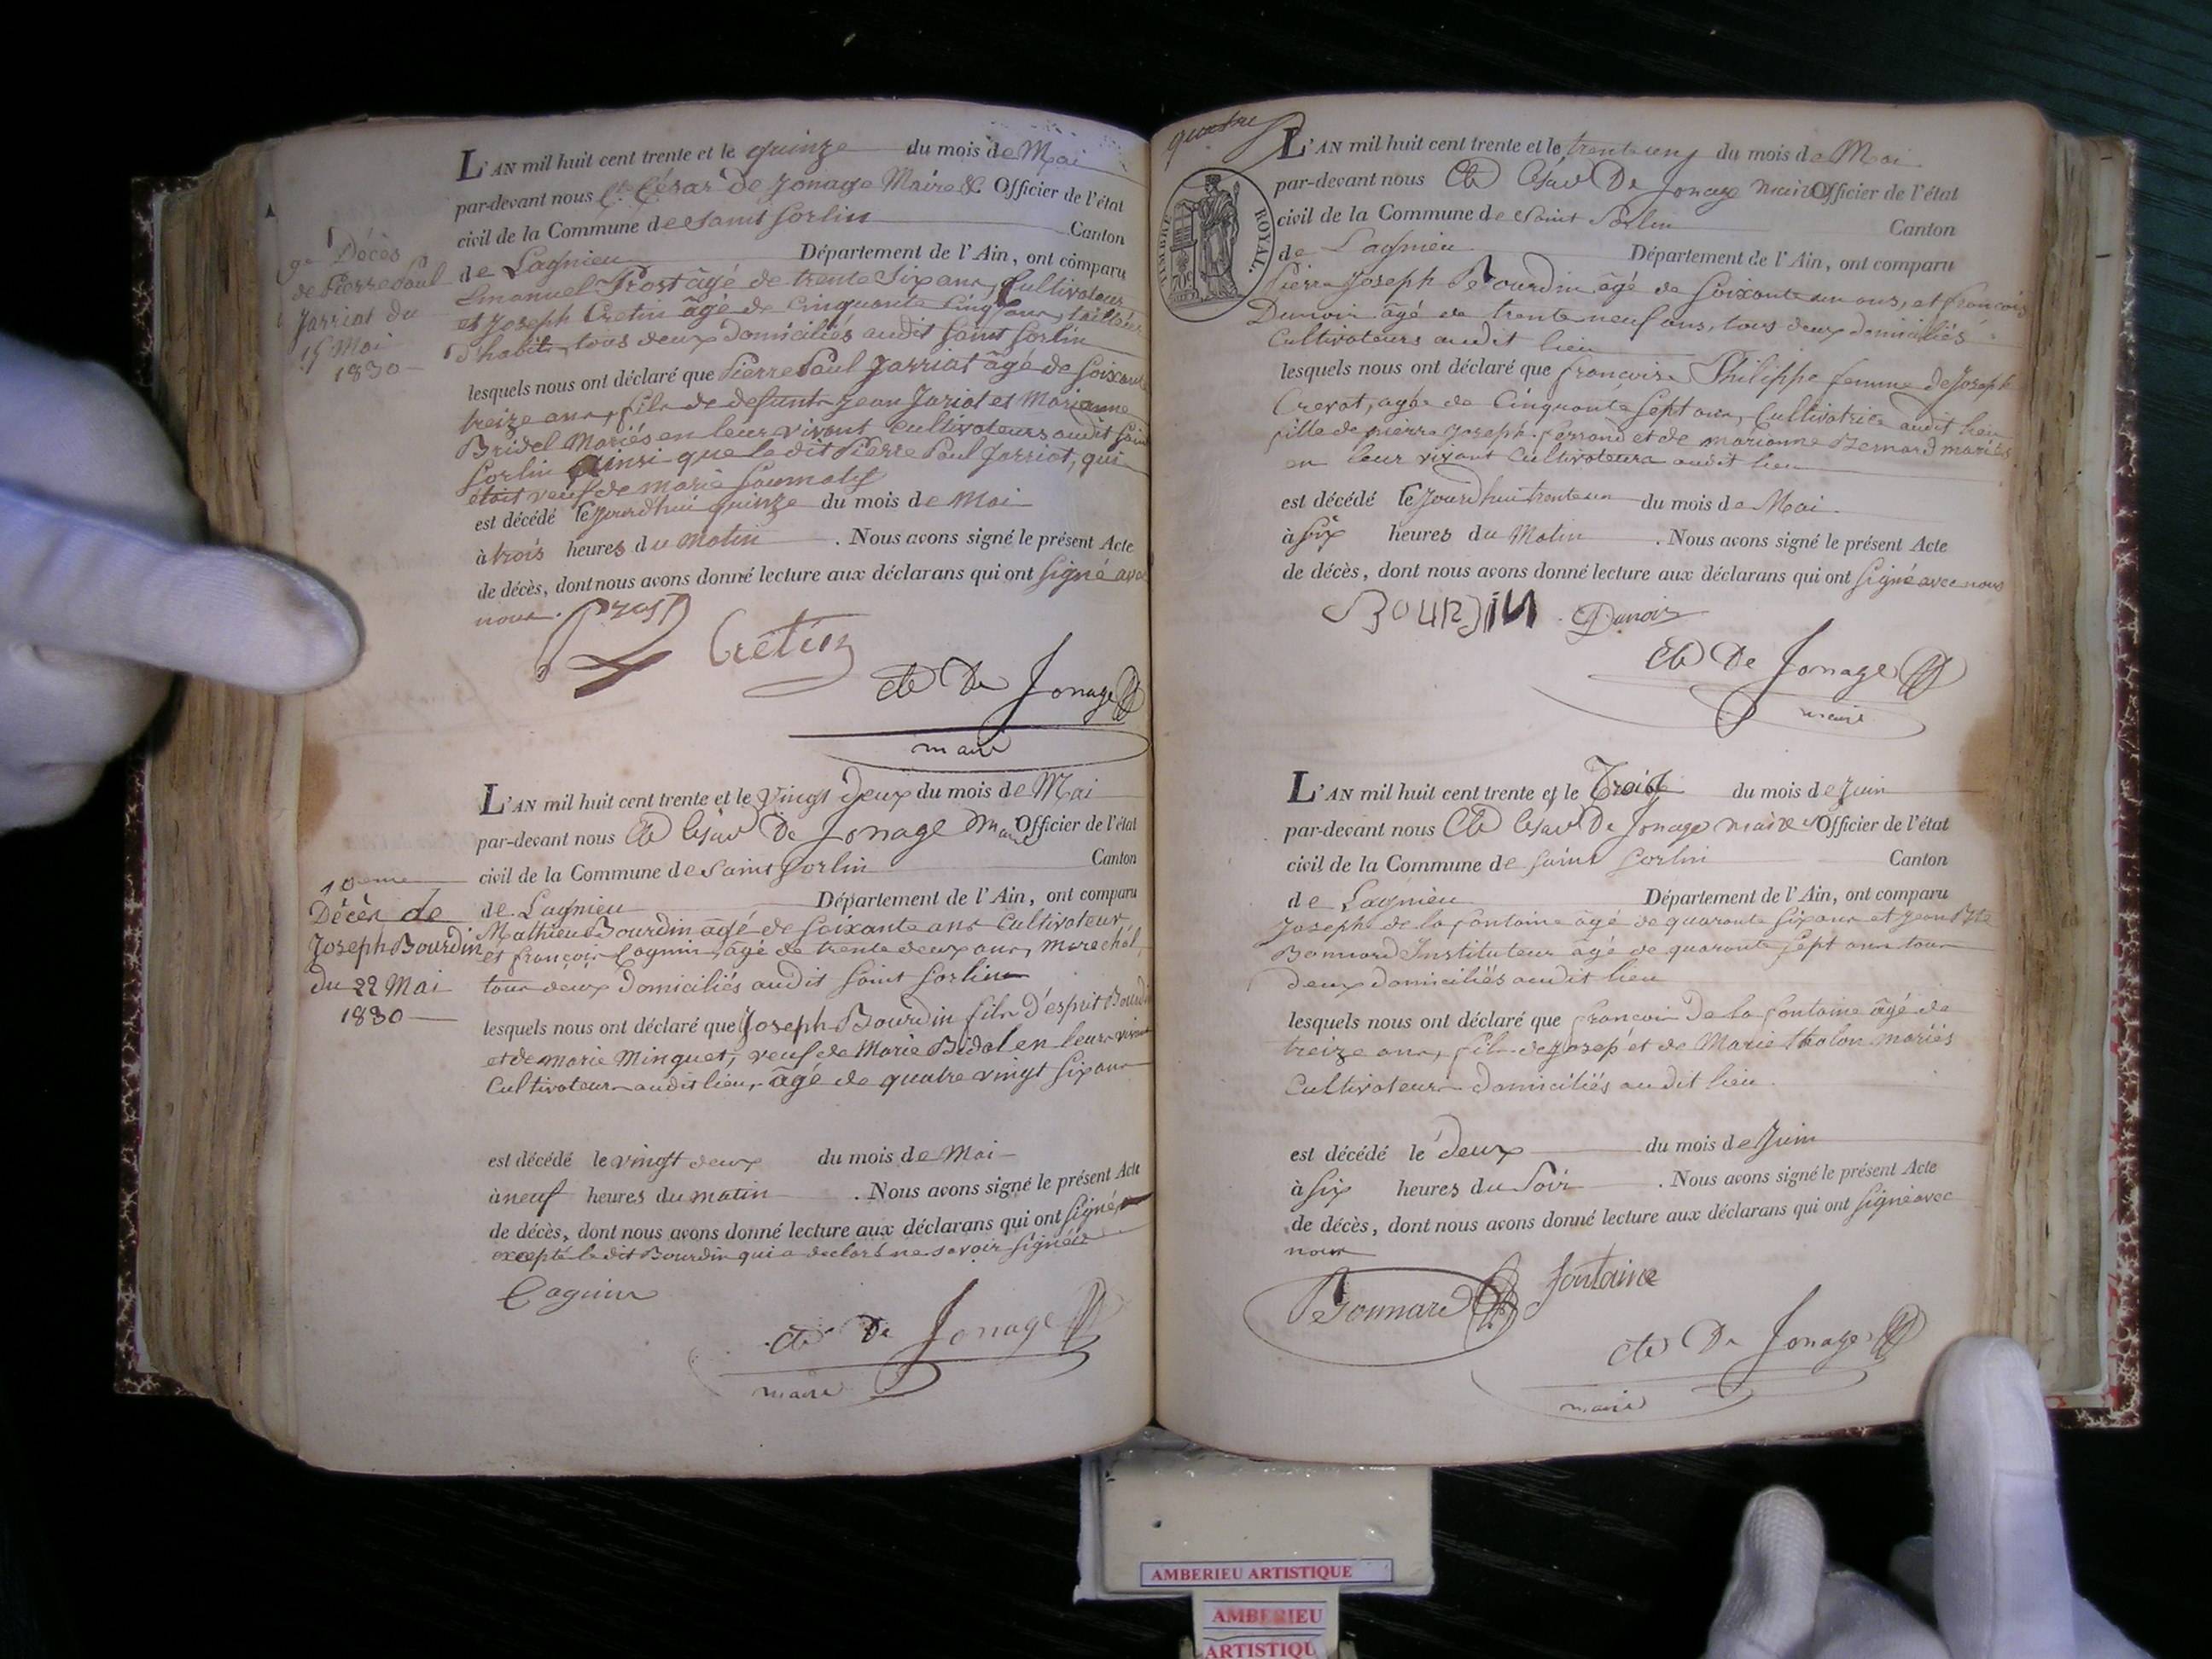 L'AN mil huit cent trente et le quinze du mois de Mai
par-devant nous Cte César De Jonage Maire & Officier de l'état
civil de la Commune de Saint Sorlin Canton
de Lagnieu Département de l'Ain, ont comparu
Emanuel Prost âgé de trente Six ans, Cultivateur
et Joseph Cretin âgé de Cinquante Cinq ans, tailleur
d'habits, tous deux domiciliés audit Saint Sorlin
lesquels nous ont déclaré que Pierre Paul Jarriat âgé de Soixante
treize ans, fils de defunts Jean Jariat et Marianne
Bridel Mariés en leur vivant Cultivateurs audit Saint
Sorlin ainsi que le dit Pierre Paul Jarriat, qui
étoit veuf de Marie
est décédé le jourd'hui quinze du mois de Mai
à trois heures du matin . Nous avons signé le présent Acte
de décès, dont nous avons donné lecture aux déclarans qui ont Signé avec
nous.
Prost Cretin
Cte De Jonage
maire
9e Décès
de Pierre Paul
Jarriat du
15 Mai
1830
L'AN mil huit cent trente et le Vingt deux du mois de Mai
par-devant nous Cte César De Jonage Maire Officier de l'état
civil de la Commune de Saint Sorlin Canton
de Lagnieu Département de l'Ain, ont comparu
Mathieu Bourdin âgé de Soixante ans Cultivateur
et françois Cagnin, âgé de trente deux ans, maréchal,
tous deux Domiciliés audit Saint Sorlin
lesquels nous ont déclaré que Joseph Bourdin fils d'esprit Bourdin
et de marie Minguet, veuf de Marie Bidal en leurs vivant
Cultivateurs audit lieu, âgé de quatre vingt Six ans
est décédé le vingt deux du mois de Mai
à neuf heures du matin . Nous avons signé le présent Acte
de décès, dont nous avons donné lecture aux déclarans qui ont Signé
excepté le dit Bourdin qui a declaré ne savoir Signée
Cagnin
cte De Jonage
maire
10eme
Décès de
Joseph Bourdin
du 22 Mai
1830
quatre
TIMBRE ROYAL.
L'AN mil huit cent trente et le trente un du mois de Mai
par-devant nous Cte César De Jonage maire Officier de l'état
civil de la Commune de Saint Sorlin Canton
de Lagnieu Département de l'Ain, ont comparu
Pierre Joseph Bourdin âgé de Soixante un ans, et françois
Dunoir âgé de trente neuf ans, tous deux domiciliés
Cultivateurs audit lieu
lesquels nous ont déclaré que françoise Philippe femme de Joseph
Crevat, agée de Cinquante Sept ans, Cultivatrice audit lieu
fille de pierre Joseph ferrand et de marianne Bernard mariés
en leur vivant Cultivateurs audit lieu
est décédé le jourd'hui trente un du mois de Mai
à Six heures du Matin . Nous avons signé le présent Acte
de décès, dont nous avons donné lecture aux déclarans qui ont Signé avec nous
BOURDIN Dunoir
Cte De Jonage
maire
L'AN mil huit cent trente et le Trois du mois de Juin
par-devant nous Cte César De Jonage maire Officier de l'état
civil de la Commune de Saint Sorlin Canton
de Lagnieu Département de l'Ain, ont comparu
Joseph de la fontaine âgé de quarante Six ans et Jean Bte
Bonnard Instituteur âgé de quarante Sept ans tous
deux domiciliés audit lieu
lesquels nous ont déclaré que françois De la fontaine âgé de
treize ans, fils de Josep et de Marie tholon mariés
Cultivateurs domiciliés audit lieu.
est décédé le deux du mois de Juin
à Six heures du Soir . Nous avons signé le présent Acte
de décès, dont nous avons donné lecture aux déclarans qui ont Signé avec
nous
Bonnard fontaine
cte De Jonage
maire
AMBERIEU ARTISTIQUE
AMBERIEU
ARTISTIQU